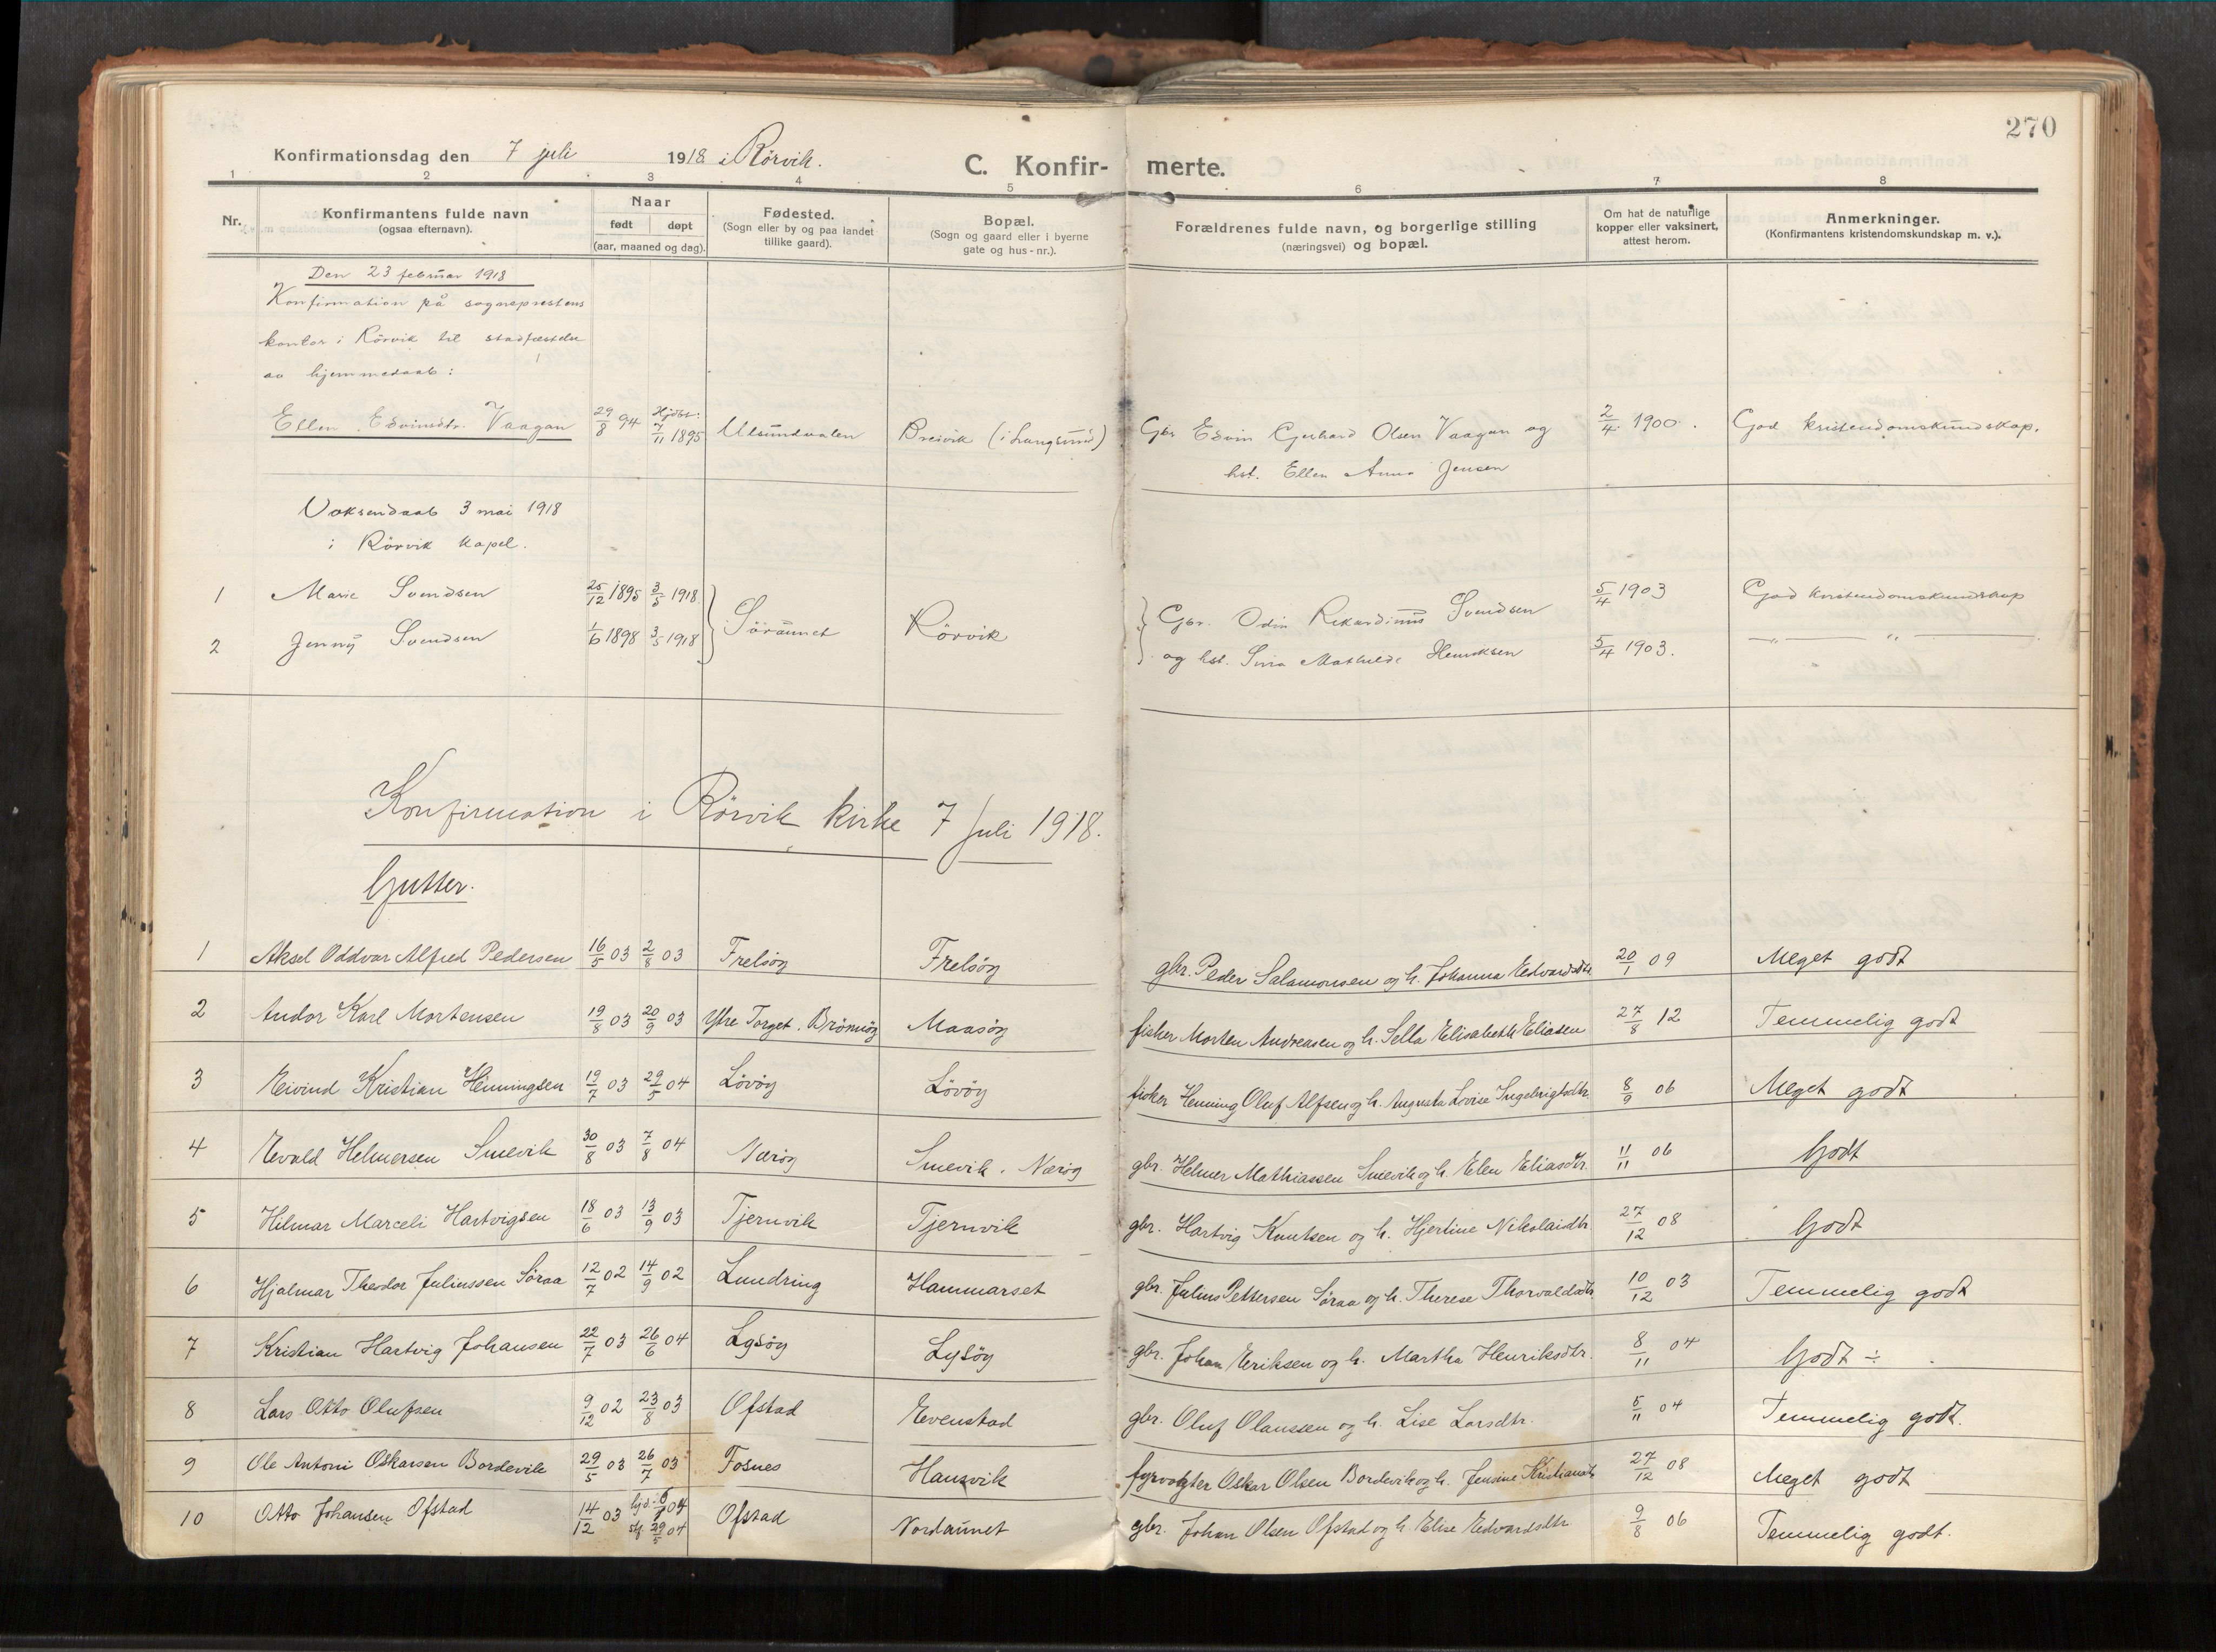 270
Konfirmationsdag den 7 juli 1918 i Rörvik.
C. Konfir- merte.
1 2 3 4 5 6 7 8
Nr. Konfirmantens fulde navn (ogsaa efternavn). Naar født døpt (aar, maaned og dag). Fødested. (Sogn eller by og paa landet tillike gaard). Bopæl. (Sogn og gaard eller i byerne gate og hus-nr.). Forældrenes fulde navn, og borgerlige stilling (næringsvei) og bopæl. Om hat de naturlige kopper eller vaksinert, attest herom. Anmerkninger. (Konfirmantens kristendomskundskap m. v.).
Den 23 februar 1918
Konfirmation på sogneprestens
kontor i Rörvik til stadfæstelse
av hjemmedaab:
Ellen Edvinsdtr. Vaagan 29/8 94 Hjdbt: 7/11 1895 Ulsundvalen Breivik (i Langsund) Gbr Edvin Gerhard Olsen Vaagan og 2/4 1900. God kristendomskundskap.
hst. Ellen Anna Jensen
Voksendaab 3 mai 1918
i Rörvik Kapel.
1 Marie Svendsen 25/12 1895 3/5 1918 Söraunet Rörvik Gbr. Odin Rikardinus Svendsen 5/4 1903 God kristendomskundskap
2 Jenny Svendsen 1/6 1898 3/5 1918 og hst. Sina Mathilde Henriksen 5/4 1903. — " — " —
Konfirmation i Rörvik kirke 7 Juli 1918.
Gutter.
1 Aksel Oddvar Alfred Pedersen 16/5 03 2/8 03 Frelsöy Frelsöy gbr. Peder Salamonsen og h. Johanna Edvardsdtr. 20/1 09 Meget godt
2 Andor Karl Mortensen 19/8 03 20/9 03 Ytre Torget. Brönnöy Maasöy fisker Morten Andreasen og h. Sella Elisabeth Eliasen 27/8 12 Temmelig godt
3 Eivind Kristian Henningsen 19/7 03 29/5 04 Lövöy Lövöy fisker Henning Oluf Alfsen og h. Augusta Lovise Ingebrigtsdtr. 8/9 06 Meget godt
4 Evald Helmersen Smevik 30/8 03 7/8 04 Næröy Smevik. Næröy gbr. Helmer Mathiassen Smevik og h. Elen Eliasdtr. 11/11 06 Godt
5 Hilmar Marceli Hartvigsen 18/6 03 13/9 03 Tjernvik Tjernvik gbr. Hartvig Knutsen og h. Hjertine Nikolaidtr. 27/12 08 Godt
6 Hjalmar Theodor Juliussen Söraa 12/7 02 14/9 02 Lundring Hammarset gbr. Julius Pettersen Söraa og h. Therese Thorvaldsdtr. 10/12 03 Temmelig godt
7 Kristian Hartvig Johansen 22/7 03 26/6 04 Lysöy Lysöy gbr. Johan Eriksen og h. Martha Henriksdtr. 8/11 04 Godt ÷
8 Lars Otto Olufsen 9/12 02 23/8 03 Ofstad Evenstad gbr. Oluf Olaussen og h. Lise Larsdtr. 6/11 04 Temmelig godt.
9 Ole Antoni Oskarsen Bordevik 29/5 03 26/7 03 Fosnes Hansvik fyrvogter Oskar Olsen Bordevik og h. Jensine Kristiansdtr. 27/12 08 Meget godt
10 Otto Johansen Ofstad 14/12 03 hjd. 04 stf 29/5 04 Ofstad Nordaunet gbr. Johan Olsen Ofstad og h. Elise Edvardsdtr 9/8 06 Temmelig godt.